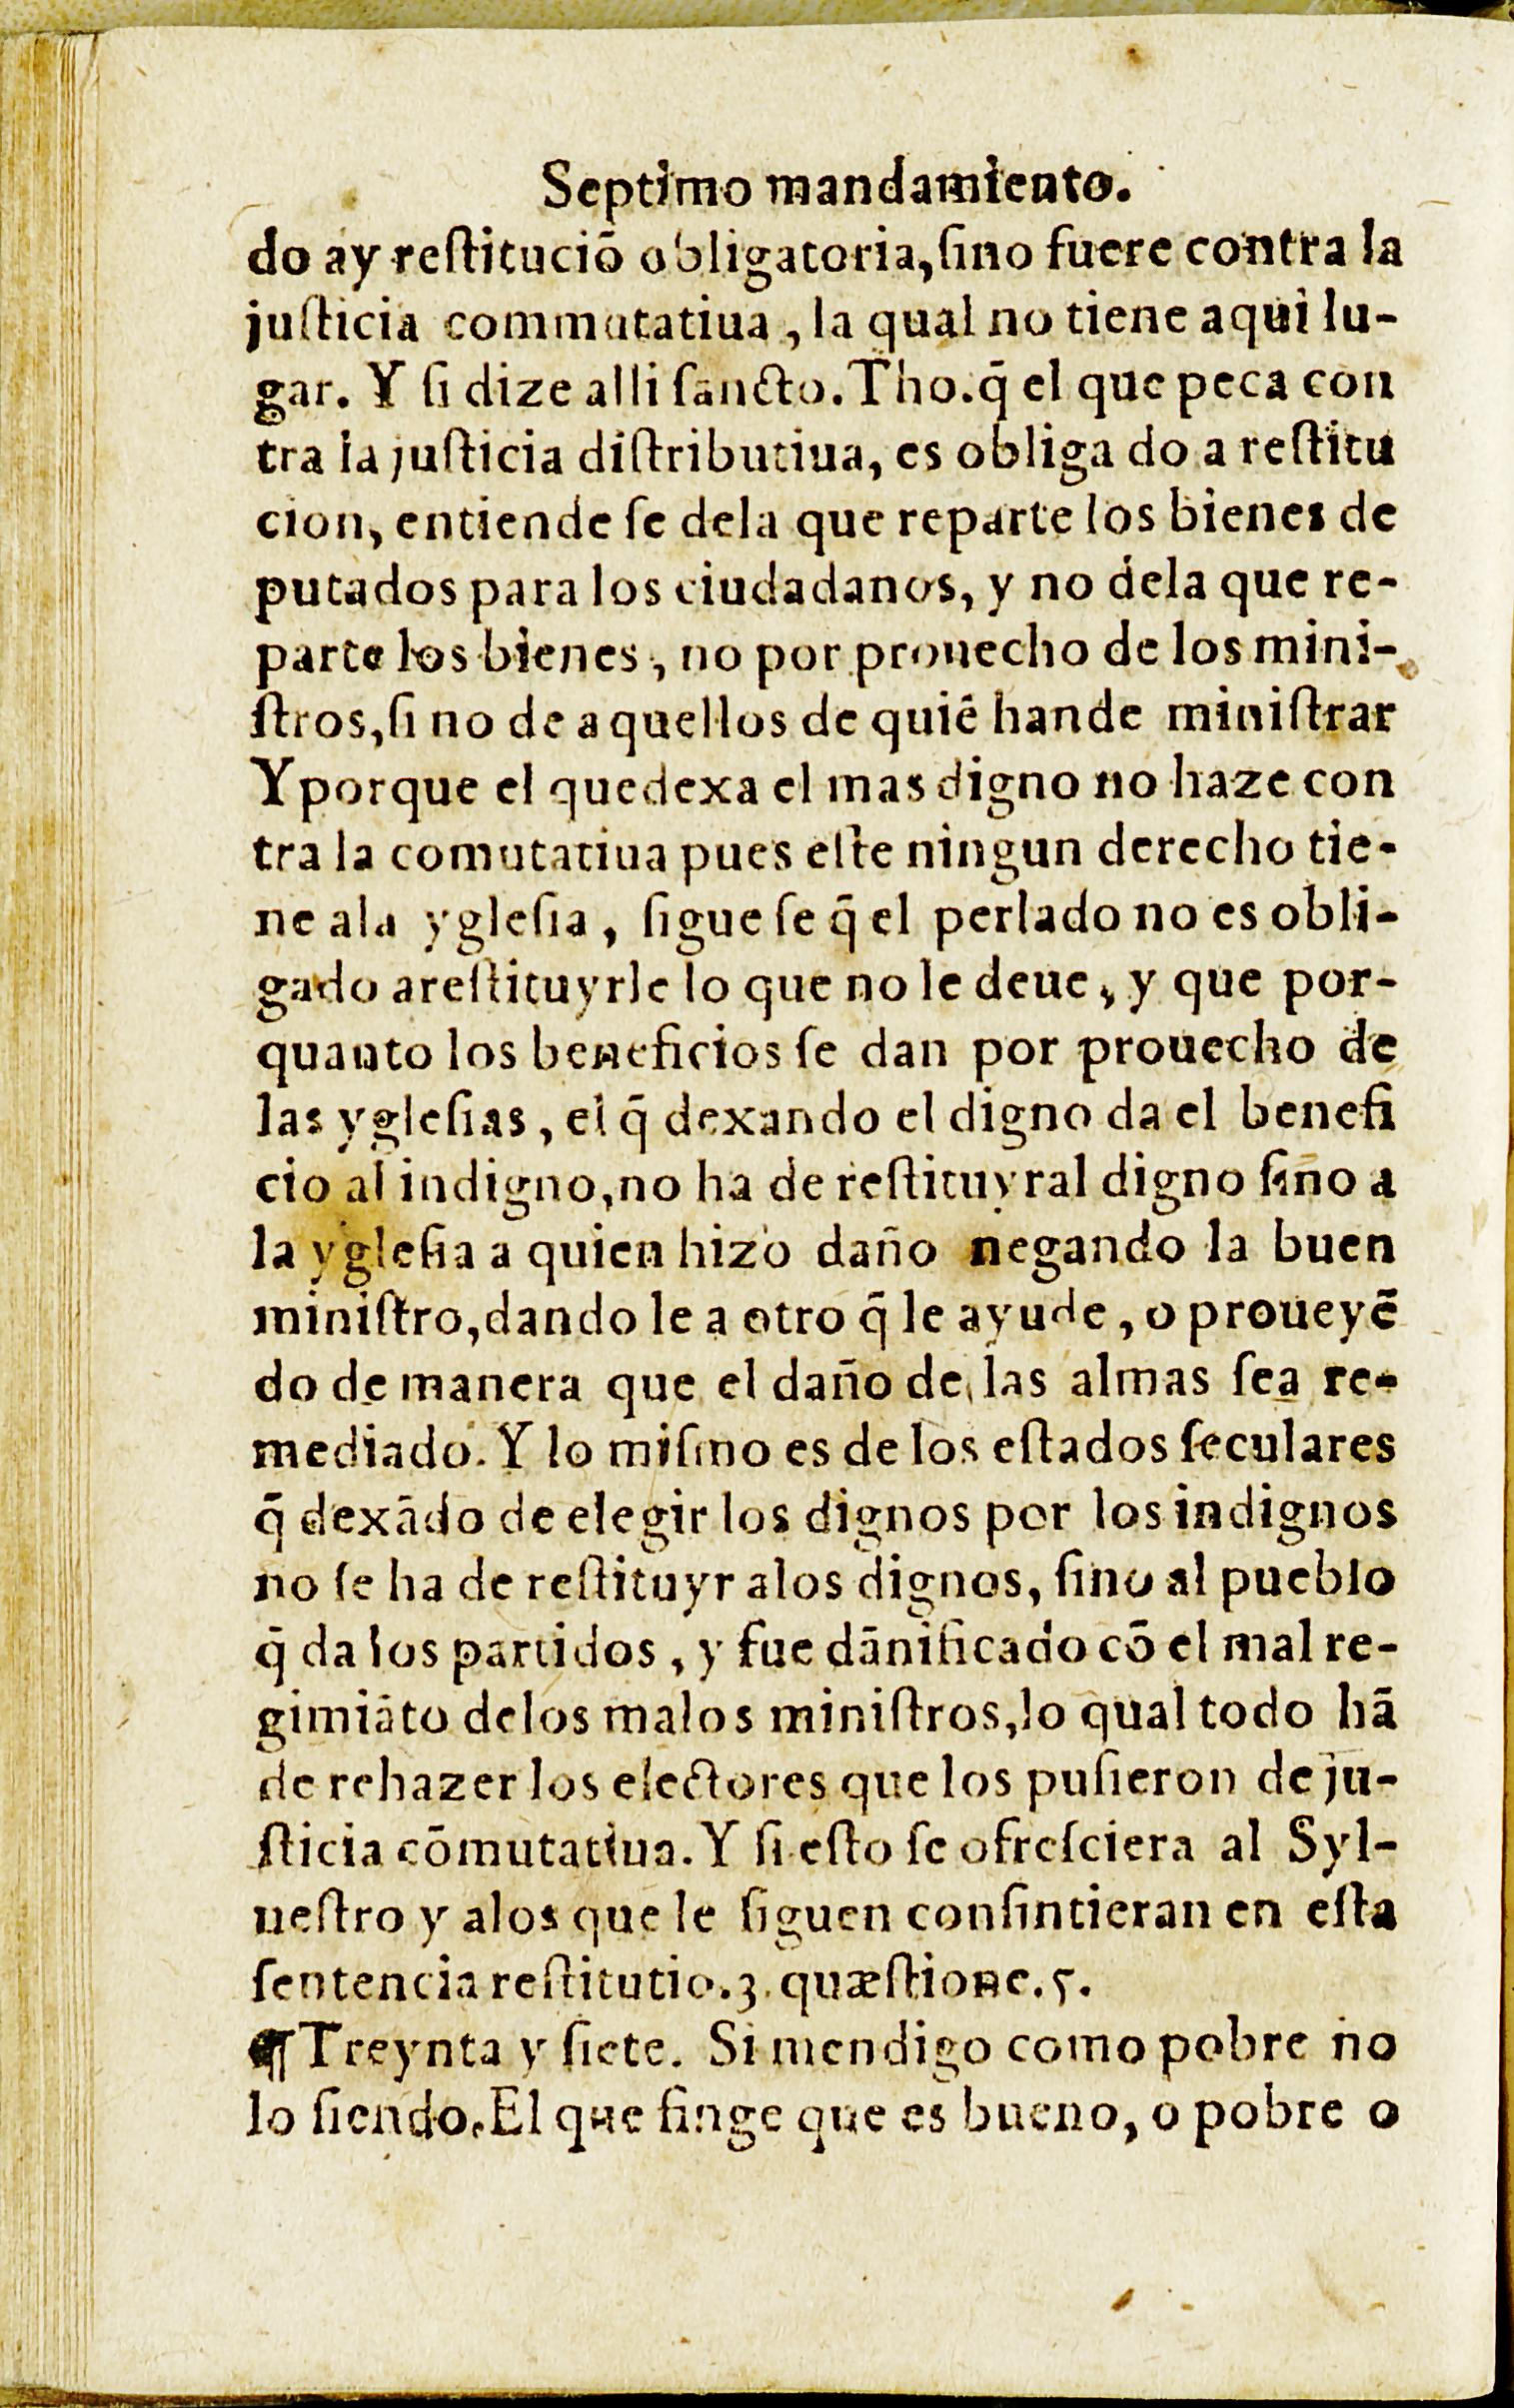 Septimo mandamiento.
do ay reſtituciõ obligatoria,ſino fuere contra la
juſticia commutatiua, la qual no tiene aqui lu-
gar. Y ſi dize alli ſancto. Tho.q̃ el que peca con
tra la juſticia diſtributiua, es obliga do a reſtitu
cion, entiende ſe dela que reparte los bienes de
putados para los ciudadanos, y no dela que re-
parte los bienes, no por prouecho de los mini-
ſtros,ſi no de aquellos de quiẽ hande miniſtrar
Y porque el quedexa el mas digno no haze con
tra la comutatiua pues eſte ningun derecho tie-
ne ala ygleſia, ſigue ſe q̃ el perlado no es obli-
gado areſtituyrle lo que no le deue, y que por-
quanto los beneficios ſe dan por prouecho de
las ygleſias, el q̃ dexando el digno da el benefi
cio al indigno,no ha de reſtituyral digno ſino a
la ygleſia a quien hizo daño negando la buen
miniſtro,dando le a otro q̃ le ayude, o proueyẽ
do de manera que el daño de las almas ſea re-
mediado. Y lo miſmo es de los eſtados ſeculares
q̃ dexãdo de elegir los dignos por los indignos
no ſe ha de reſtituyr alos dignos, ſino al pueblo
q̃ da los partidos, y fue dãnificado cõ el mal re-
gimiãto delos malos miniſtros,lo qual todo hã
de rehazer los electores que los puſieron de ju-
ſticia cõmutatiua. Y ſi eſto ſe ofreſciera al Syl-
ueſtro y alos que le ſiguen conſintieran en eſta
ſentencia reſtitutio.3. quæſtione.5.
¶ Treynta y ſiete. Si mendigo como pobre no
lo ſiendo. El que finge que es bueno, o pobre o